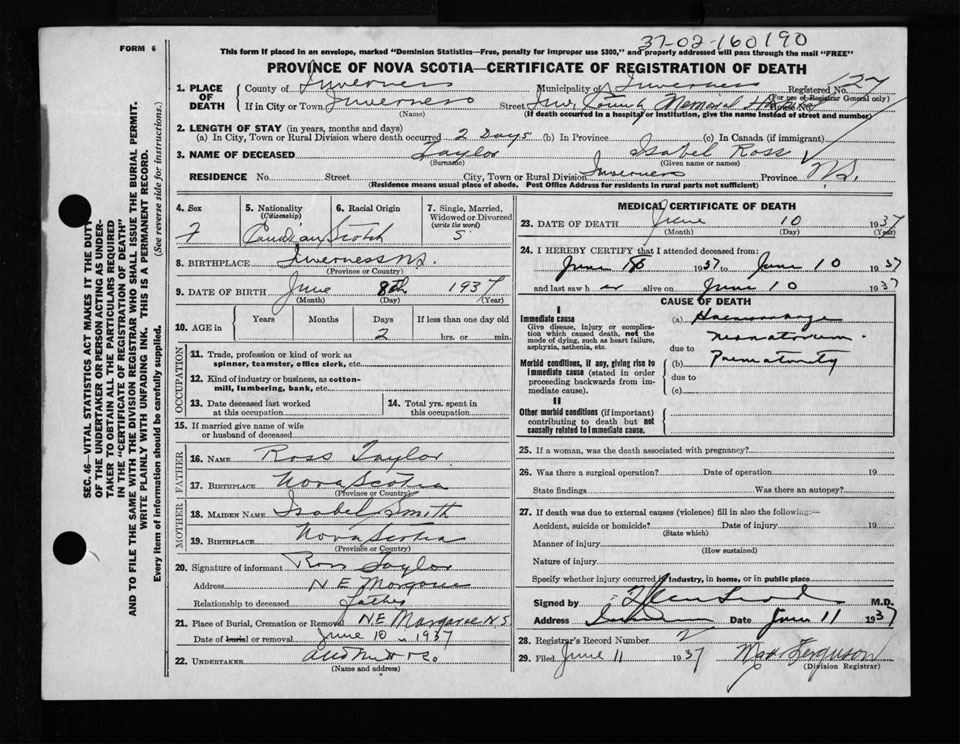 37-02-160190
FORM 6
This form if placed in an envelope, marked "Dominion Statistics—Free, penalty for improper use $300," and properly addressed will pass through the mail "FREE"
PROVINCE OF NOVA SCOTIA—CERTIFICATE OF REGISTRATION OF DEATH
1. PLACE OF DEATH County of Inverness Municipality of Inverness Registered No. 127
(For use of Registrar General only)
If in City or Town Inverness Street Inv. County Memorial House No.
(Name) (If death occurred in a hospital or institution, give the name instead of street and number)
2. LENGTH OF STAY (in years, months and days)
(a) In City, Town or Rural Division where death occurred 2 Days (b) In Province (c) In Canada (if immigrant)
3. NAME OF DECEASED Taylor Isabel Ross
(Surname) (Given name or names)
RESIDENCE No. Street City, Town or Rural Division Inverness Province N.S.
(Residence means usual place of abode. Post Office Address for residents in rural parts not sufficient)
SEC. 46—VITAL STATISTICS ACT MAKES IT THE DUTY
OF THE UNDERTAKER OR PERSON ACTING AS UNDER-
TAKER TO OBTAIN ALL THE PARTICULARS REQUIRED
IN THE "CERTIFICATE OF REGISTRATION OF DEATH"
AND TO FILE THE SAME WITH THE DIVISION REGISTRAR WHO SHALL ISSUE THE BURIAL PERMIT.
WRITE PLAINLY WITH UNFADING INK. THIS IS A PERMANENT RECORD.
Every item of information should be carefully supplied. (See reverse side for instructions.)
4. Sex 5. Nationality (Citizenship) 6. Racial Origin 7. Single, Married, Widowed or Divorced (write the word)
F Canadian Scotch S.
8. BIRTHPLACE Inverness N.S.
(Province or Country)
9. DATE OF BIRTH June 8th 1937
(Month) (Day) (Year)
10. AGE in Years Months Days If less than one day old
2 hrs. or min.
OCCUPATION
11. Trade, profession or kind of work as
spinner, teamster, office clerk, etc.
12. Kind of industry or business, as cotton-
mill, lumbering, bank, etc.
13. Date deceased last worked at this occupation 14. Total yrs. spent in this occupation
15. If married give name of wife
or husband of deceased
FATHER
16. NAME Ross Taylor
17. BIRTHPLACE Nova Scotia
(Province or Country)
MOTHER
18. MAIDEN NAME Isabel Smith
19. BIRTHPLACE Nova Scotia
(Province or Country)
20. Signature of informant Ross Taylor
Address N E Margaree
Relationship to deceased Father
21. Place of Burial, Cremation or Removal N.E. Margaree N.S.
Date of burial or removal June 10 1937
22. UNDERTAKER
(Name and address)
MEDICAL CERTIFICATE OF DEATH
23. DATE OF DEATH June 10 1937
(Month) (Day) (Year)
24. I HEREBY CERTIFY that I attended deceased from:
June 8 1937 to June 10 1937
and last saw her alive on June 10 1937
CAUSE OF DEATH
I
Immediate cause (a) Haemorrhage
Give disease, injury or complica-
tion which caused death, not the
mode of dying, such as heart failure,
asphyxia, asthenia, etc.
Neonatorium
due to
Morbid conditions, if any, giving rise to (b) Prematurity
immediate cause (stated in order
proceeding backwards from im-
mediate cause).
due to
(c)
II
Other morbid conditions (if important)
contributing to death but not
causally related to immediate cause.
25. If a woman, was the death associated with pregnancy?
26. Was there a surgical operation? Date of operation 19
State findings Was there an autopsy?
27. If death was due to external causes (violence) fill in also the following:—
Accident, suicide or homicide? Date of injury 19
(State which)
Manner of injury
(How sustained)
Nature of injury
Specify whether injury occurred in industry, in home, or in public place
Signed by M.D.
Address Date June 11 1937
28. Registrar's Record Number 2
29. Filed June 11 1937 Ferguson
(Division Registrar)